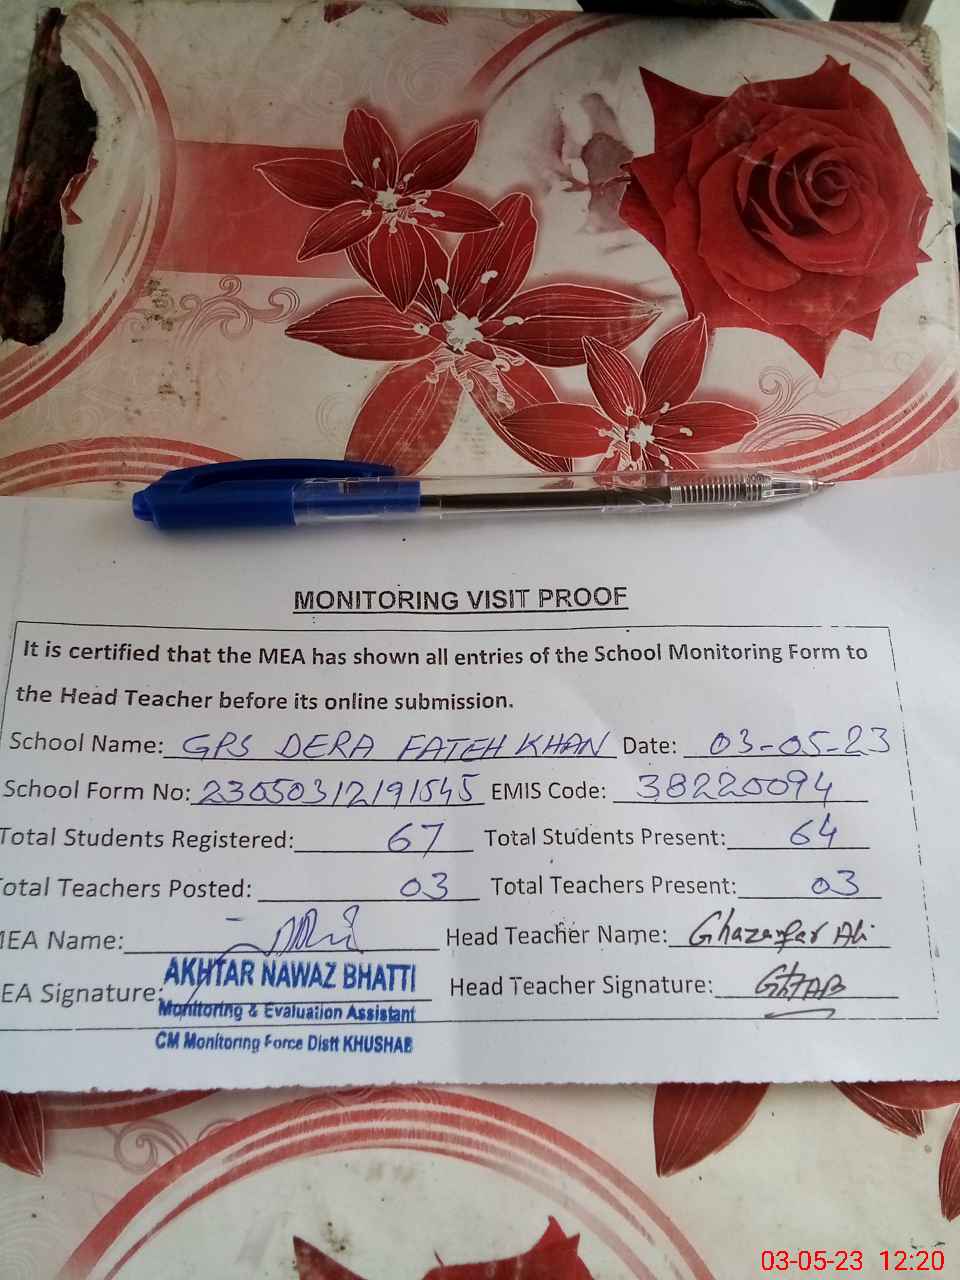 MONITORING VISIT PROOF
It is certified that the MEA has shown all entries of the School Monitoring Form to
the Head Teacher before its online submission.
School Name: GPS DERA FATEH KHAN Date: 03-05-23
School Form No: 23050312191545 EMIS Code: 38220094
Total Students Registered: 67 Total Students Present: 64
Total Teachers Posted: 03 Total Teachers Present: 03
MEA Name: Head Teacher Name: Ghazanfar Ali
EA Signature: Head Teacher Signature:
AKHTAR NAWAZ BHATTI
Monitoring & Evaluation Assistant
CM Monitoring Force Distt KHUSHAB
03-05-23 12:20